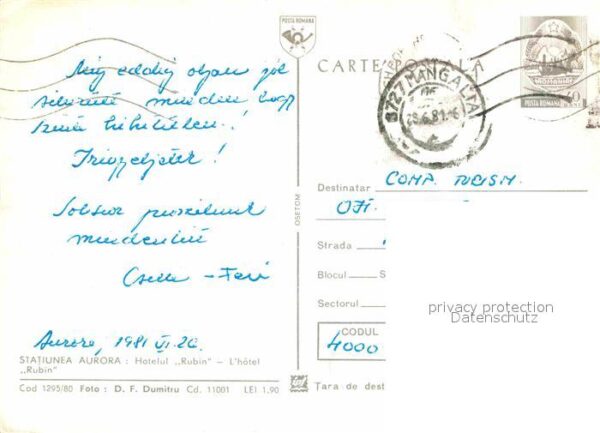 POSTA ROMANA
CARTE POSTALA
POSTA ROMANA
8727 MANGALIA
Még eddig olyan jól
sikerült minden, hogy
szinte hihetetlen!
Irigyeljetek!
Sokszor puszilunk
mindenkit
Csilla – Feri
Aurora, 1981 VI. 26.
STAȚIUNEA AURORA : Hotelul „Rubin” – L'hôtel
„Rubin”
Cod 1295/80 Foto : D. F. Dumitru Cd. 11001 LEI 1,90
OSETOM
Destinatar COMP. TURISM.
OJT.
Strada
Blocul S
Sectorul
CODUL
4000
Tara de dest
privacy protection
Datenschutz